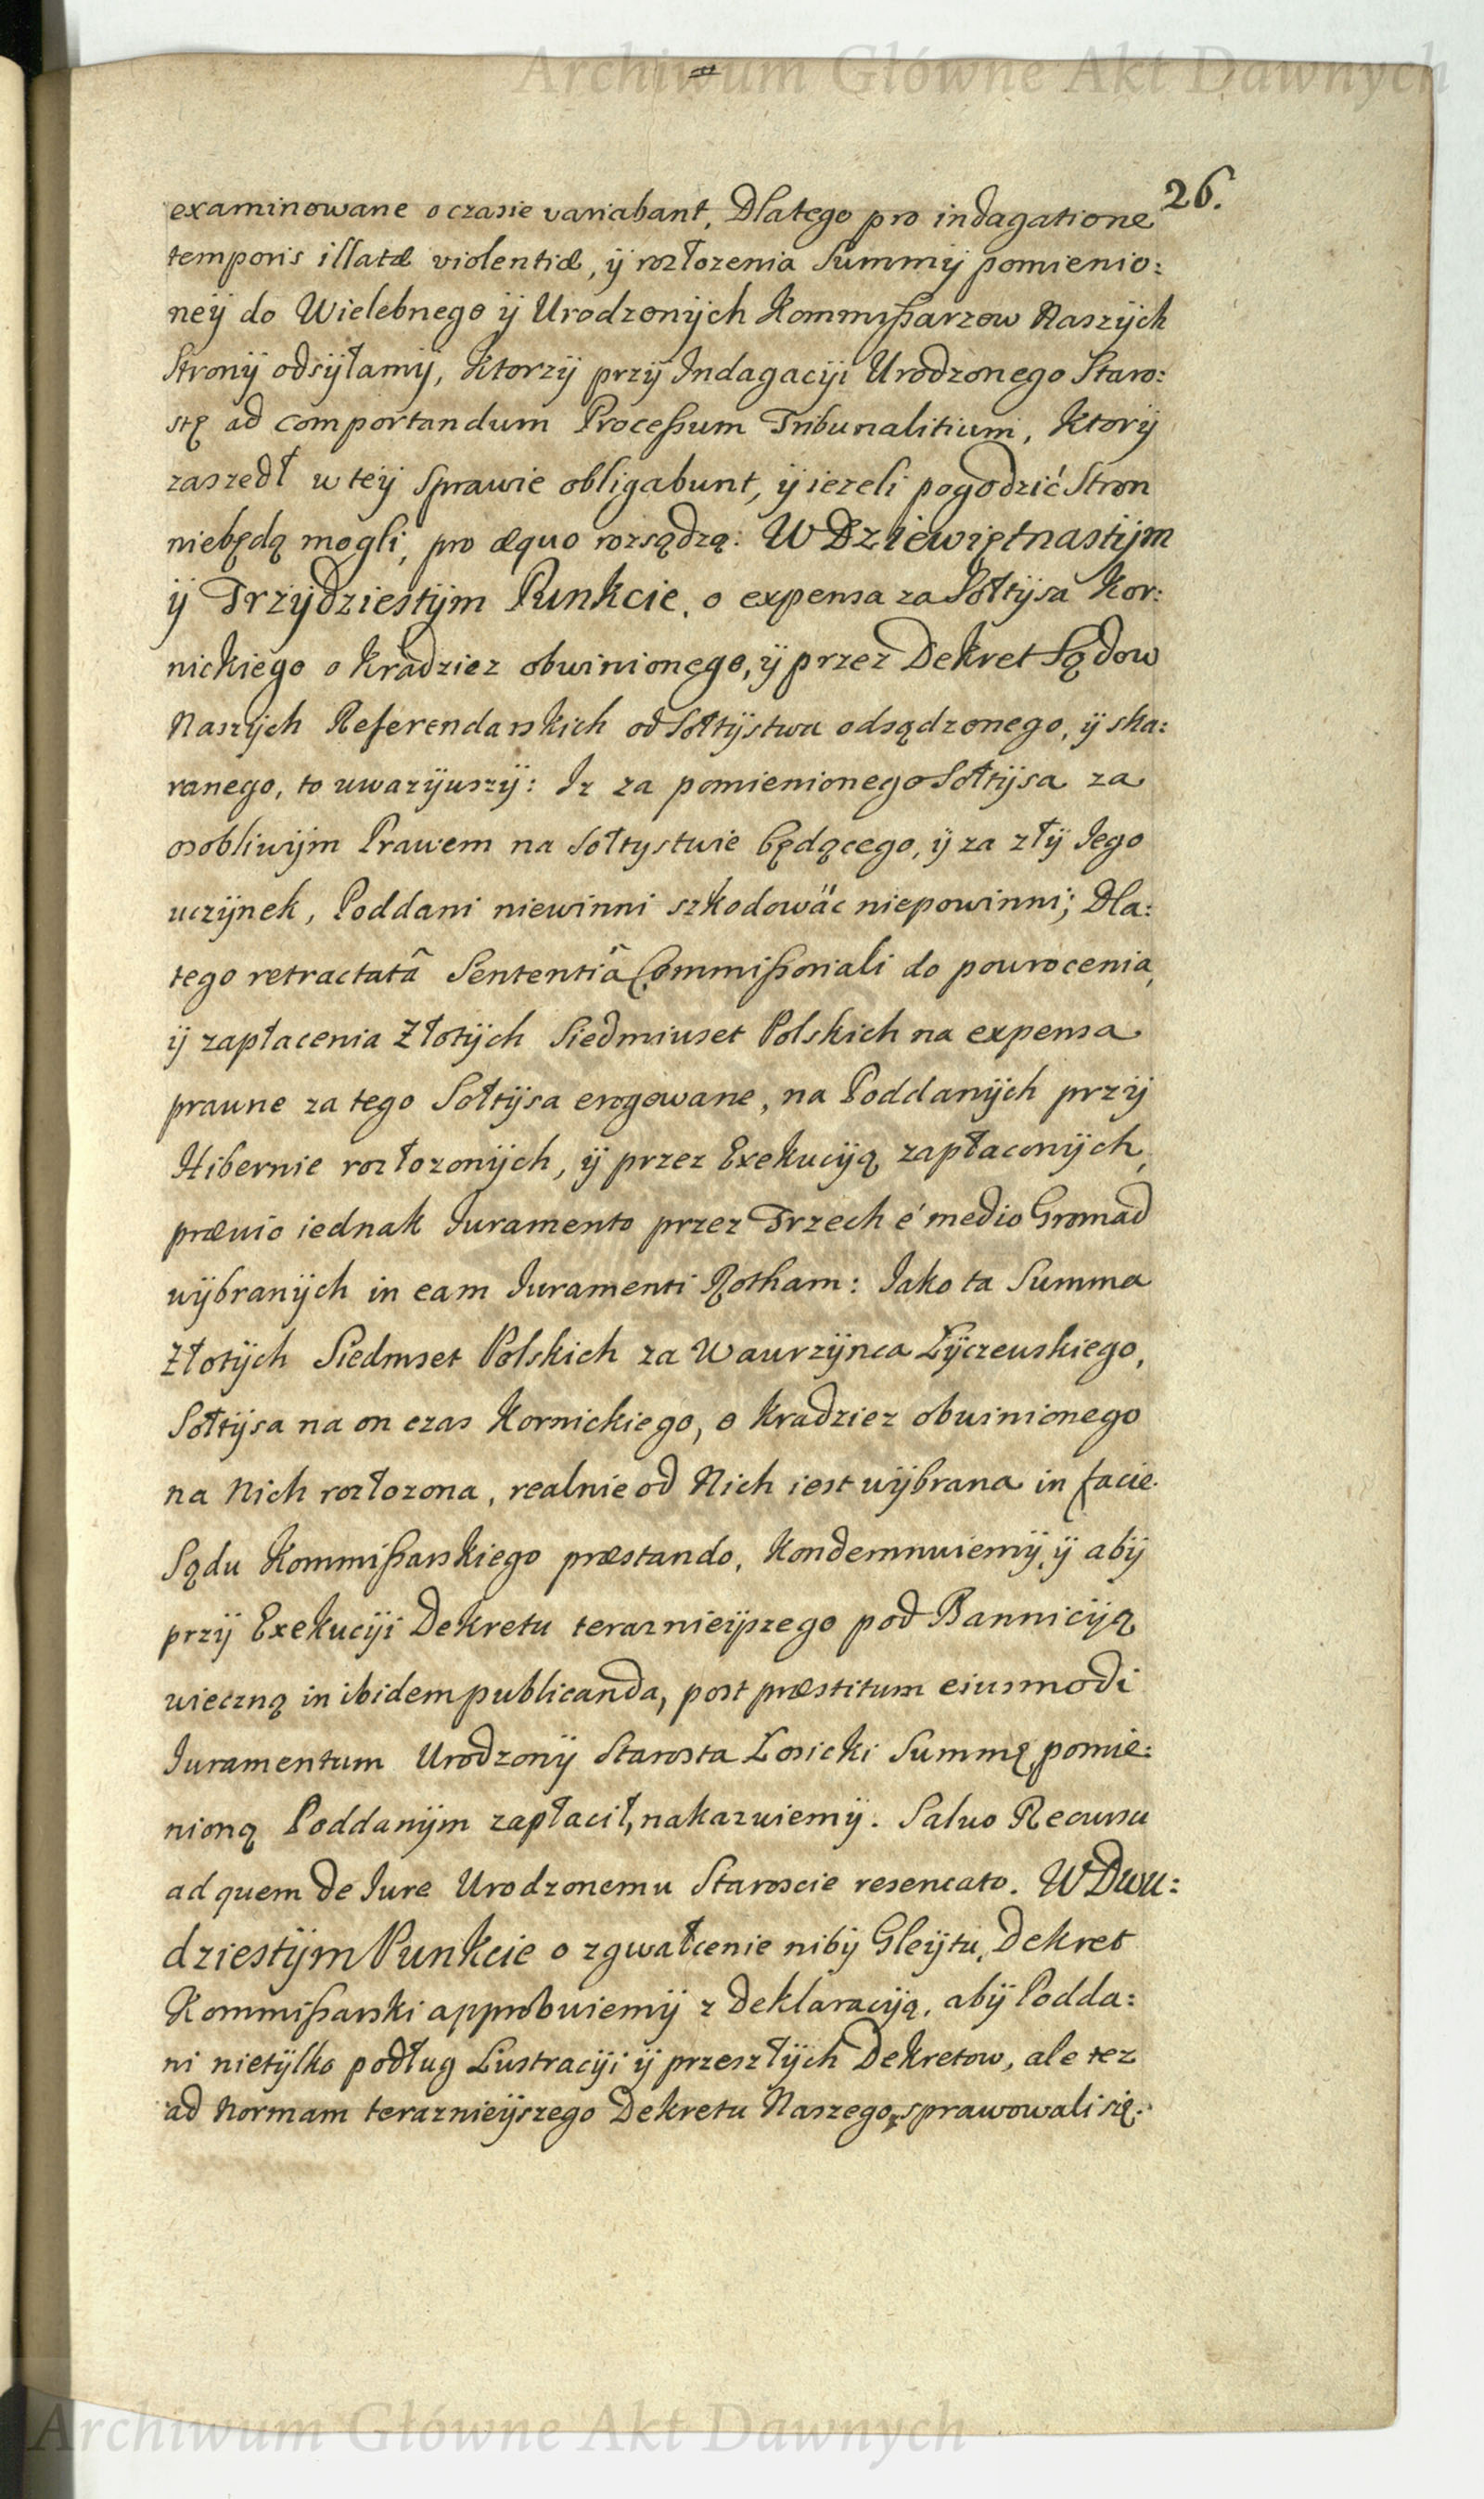 Archiwum Główne Akt Dawnych
26.
examinowane o czasie variabant, Dlatego pro indagatione
temporis illatæ violentiæ, ÿ rozłozenia Summÿ pomienio:
neÿ do Wielebnego ÿ Urodzonÿch Kommißarzow Naszÿch
Stronÿ odsÿłamÿ, Ktorzÿ przÿ Indagacÿi Urodzonego Staro:
stę ad comportandum Proceßum Tribunalitium, Ktorÿ
zaszedł w teÿ Sprawie obligabunt, ÿ iezeli pogodzić Stron
niebędą mogli, pro æquo rozsądzą. W Dziewiętnastÿm
ÿ Trzÿdziestÿm Punkcie, o expensa za Sołtÿsa Kor:
nickiego o Kradziez obwinionego, ÿ przez Dekret Sądow
Naszÿch Referendarskich od Sołtÿstwa odsądzonego, ÿ ska:
ranego, to uwazÿwszÿ: Iz za pomienionego Sołtÿsa za
osobliwÿm Prawem na Sołtystwie będącego, ÿ za złÿ Iego
uczÿnek, Poddani niewinni szkodowäc niepowinni; Dla:
tego retractatâ Sententiâ Commißoriali do powrocenia,
ÿ zapłacenia Złotÿch Siedmiuset Polskich na expensa
prawne za tego Sołtÿsa erogowane, na Poddanÿch przÿ
Hibernie rozłozonÿch, ÿ przez Exekucÿą zapłaconÿch,
prævio iednak Iuramento przez Trzech é medio Gromad
wÿbranÿch in eam Iuramenti Rotham: Iako ta Summa
Złotÿch Siedmset Polskich za Wawrzÿnca Łÿczewskiego,
Sołtÿsa na on czas Kornickiego, o Kradziez obwinionego
na Nich rozłozona, realnie od Nich iest wÿbrana in facie
Sądu Kommißarskiego præstando, Kondemnuiemÿ, ÿ abÿ
przÿ Exekucÿi Dekretu teraznieÿszego pod Bannicÿą
wieczną in ibidem publicanda, post præstitum eiusmodi
Iuramentum Urodzonÿ Starosta Łosicki Summę pomie:
nioną Poddanÿm zapłacił, nakazuiemÿ. Salvo Recursu
ad quem de Iure Urodzonemu Staroscie reservato. W Dwu:
dziestÿm Punkcie o zgwałcenie nibÿ Gleÿtu, Dekret
Kommißarski approbuiemÿ z deklaracÿą, abÿ Podda:
ni nietÿlko podług Lustracÿi ÿ przeszłÿch Dekretow, ale tez
ad Normam teraznieÿszego Dekretu Naszego, sprawowali się.
Archiwum Główne Akt Dawnych